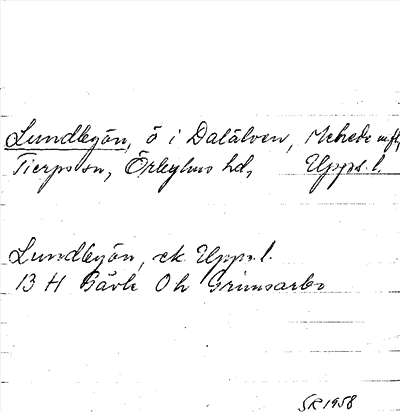 Lundbyön, ö i Dalälven, Mehede m.fl.,
Tierps sn, Örbyhus hd, Upps. l.
Lundbyön, ek Upps. l.
13 H Gävle Oh Grimsarbo
SR 1958